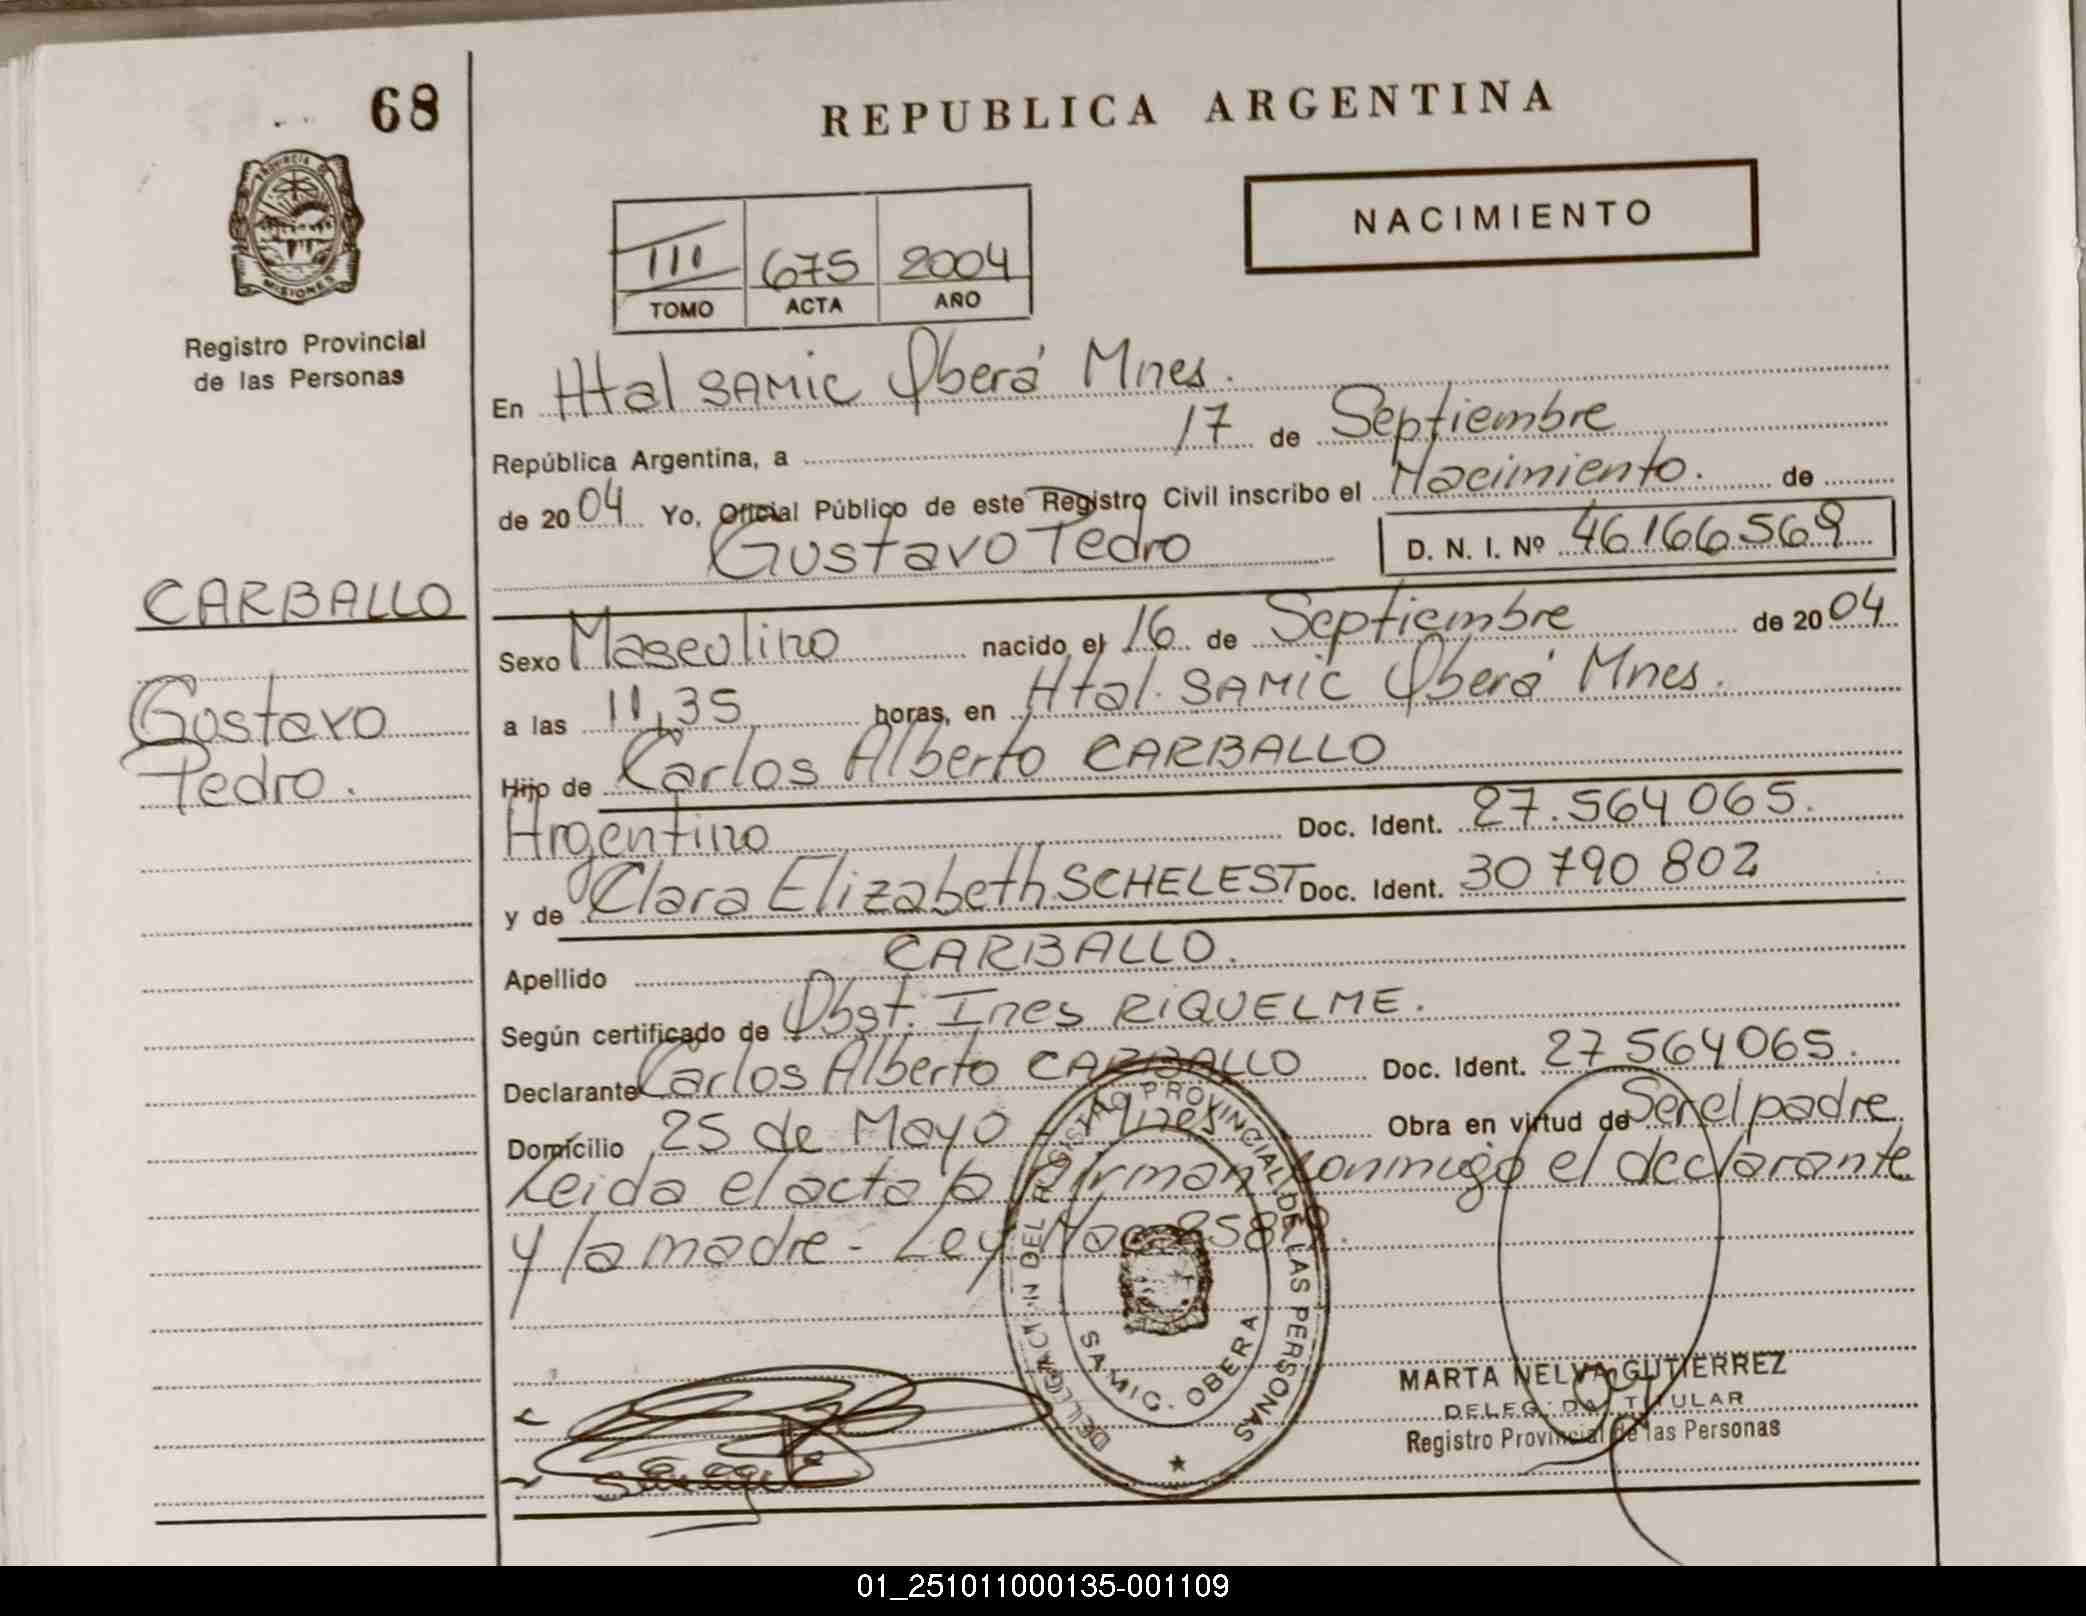 68
REPUBLICA ARGENTINA
NACIMIENTO
PROVINCIA DE
MISIONES
Registro Provincial
de las Personas
III 675 2004
TOMO ACTA AÑO
En Htal SAMIC Oberá Mnes.
República Argentina, a 17 de Septiembre
de 2004 Yo, Oficial Público de este Registro Civil inscribo el Nacimiento. de
Gustavo Pedro D. N. I. Nº 46166569
CARBALLO
Gustavo
Pedro.
Sexo Masculino nacido el 16 de Septiembre de 2004
a las 11,35 horas, en Htal. SAMIC Oberá Mnes.
Hijo de Carlos Alberto CARBALLO
Argentino Doc. Ident. 27.564065.
y de Clara Elizabeth SCHELEST Doc. Ident. 30790802
Apellido CARBALLO.
Según certificado de Obst. Ines RIQUELME.
Declarante Carlos Alberto CARBALLO Doc. Ident. 27564065.
Domicilio 25 de Mayo - Mnes Obra en virtud de Ser el padre.
Leida el acta la firman conmigo el declarante
y la madre - Ley Nac.
DELEGACION DEL REGISTRO PROVINCIAL DE LAS PERSONAS
SAMIC. OBERA
MARTA NELVA GUTIERREZ
DELEGADA TITULAR
Registro Provincial de las Personas
01_251011000135-001109